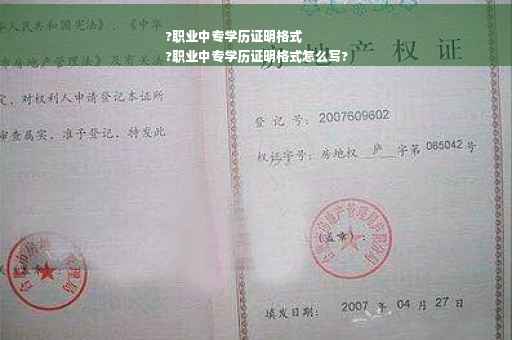 ?职业中专学历证明格式
?职业中专学历证明格式怎么写?
人民共和国宪法》、《中华
房地产管理法》及有关
定，对权利人申请登记本证所
审查属实，准予登记，特发此
产权证
登记号：2007609602
权证字号：房地权 庐 字第 065042 号
(盖章)：
填发日期：2007 年 04 月 27 日